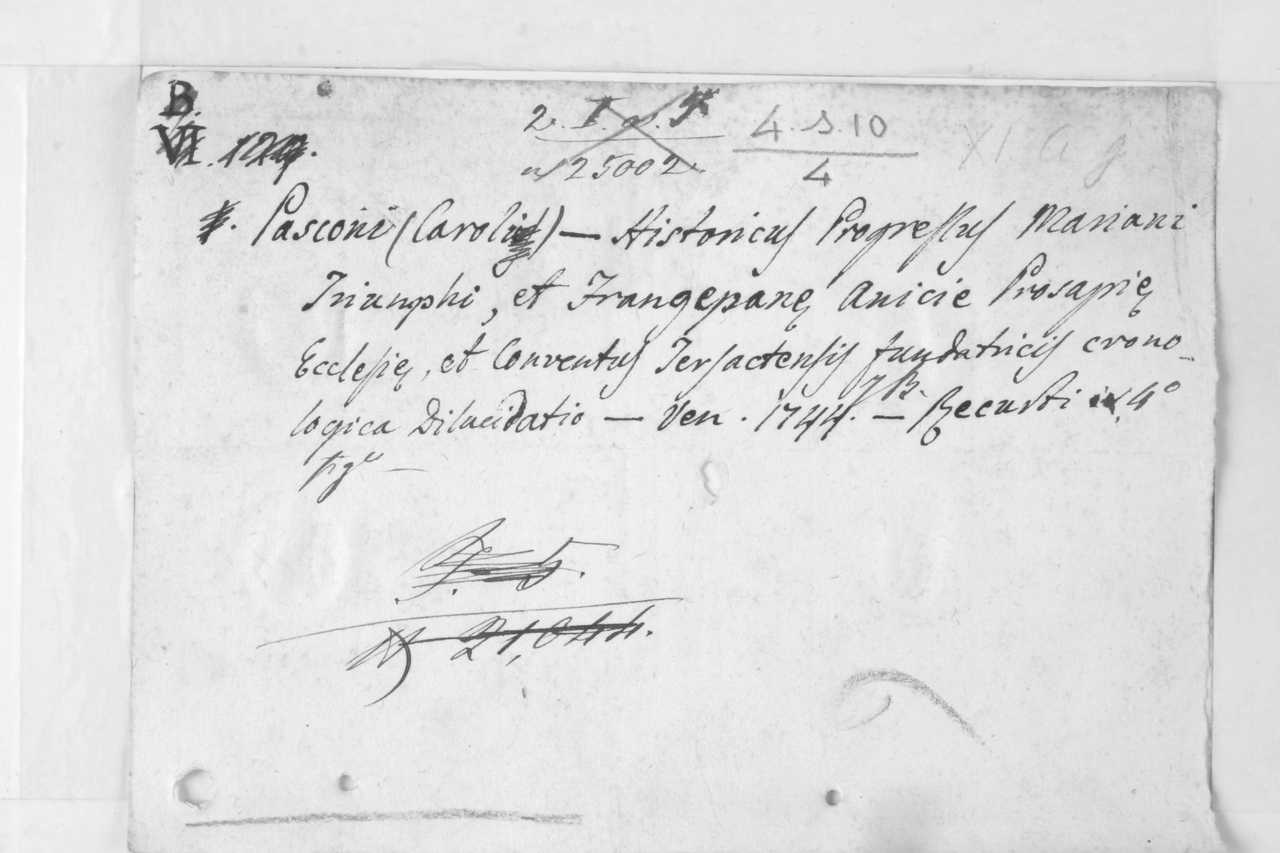 B.
VI. 124.
2. I. 
n 25002.
4. S. 10
4
XI a g
Pasconi (Caroli) — Historicus Progressus Mariani
Triumphi, et Frangepanę Anicie Prosapię
Ecclesię, et Conventus Tersactensis fundatricis crono-
logica Dilucidatio — Ven. 1744. JB. — Recurti in 4°
fig.
N 21,044.